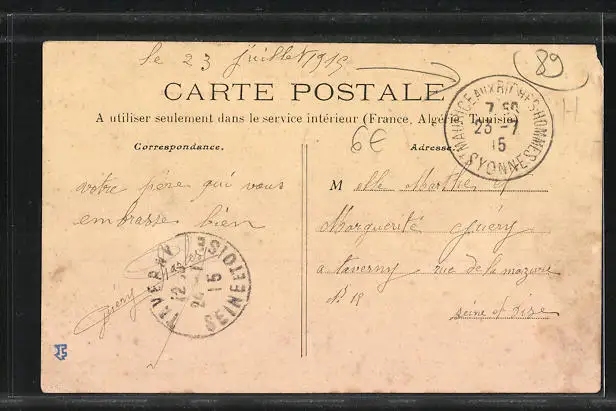 le 23 juillet 1915
89
CARTE POSTALE
A utiliser seulement dans le service intérieur (France, Algérie, Tunisie)
6€
H
Correspondance.
Adresse.
ST MAURICE AUX RICHES HOMMES
7
23 - 7
15
YONNE
votre père qui vous
embrasse bien
Guéry
TAVERNY
12
24 -
15
SEINE ET OISE
Melle Marthe et
Marguerite Guéry
a taverny rue de la mazure
N° 18
seine et oise